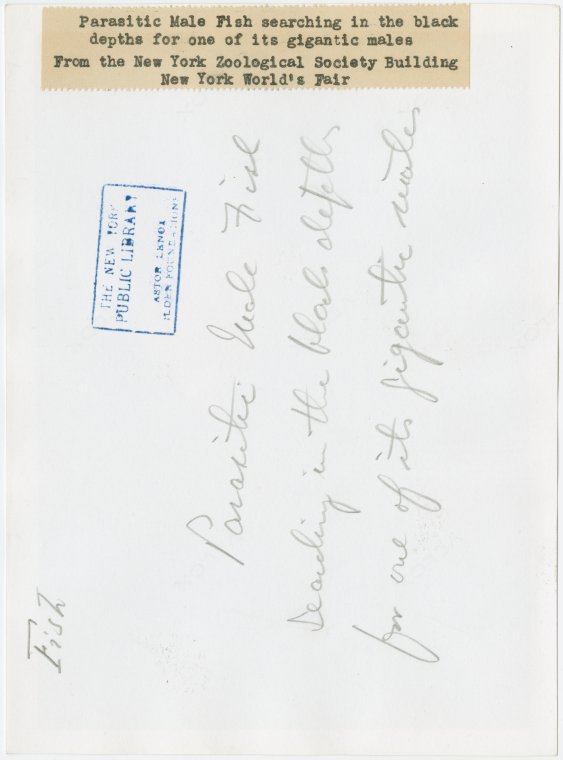 Parasitic Male Fish searching in the black
depths for one of its gigantic males
From the New York Zoological Society Building
New York World's Fair
THE NEW YORK
PUBLIC LIBRARY
ASTOR LENOX
TILDEN FOUNDATIONS
Parasitic Male Fish
searching in the black depths
for one of its gigantic males
Fish